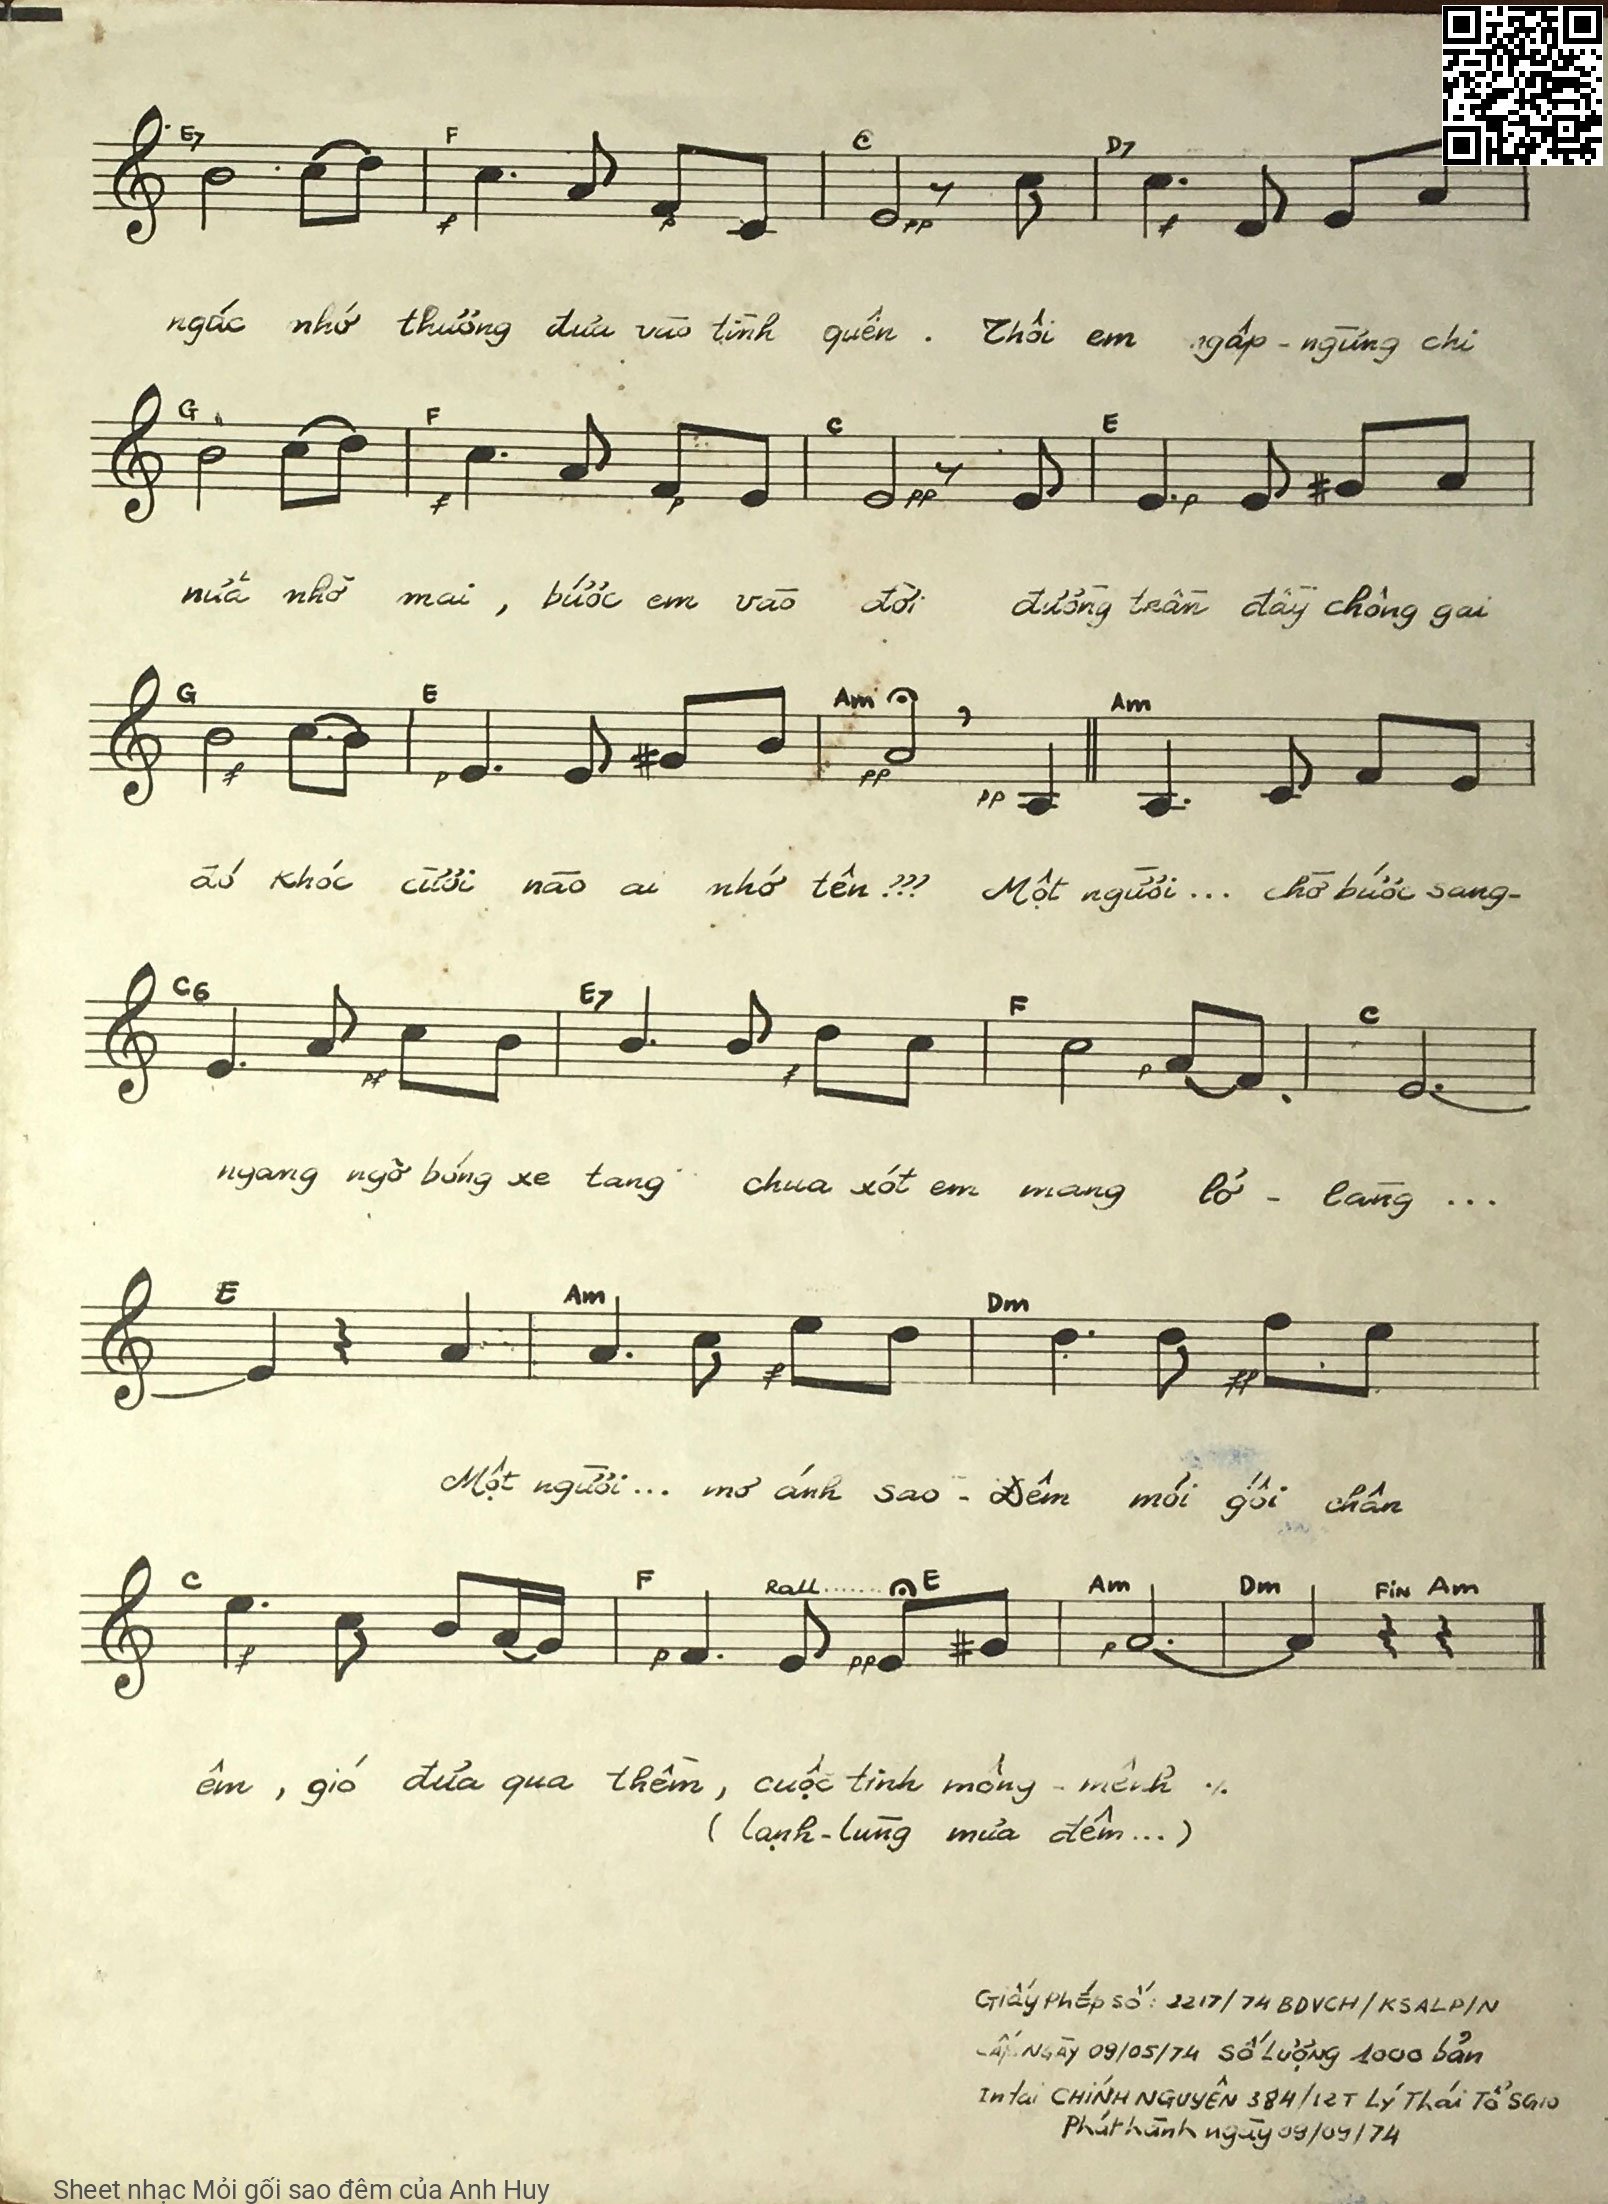 E7 F C D7
f p pp f
ngác nhớ thương đưa vào tình quên . Thôi em ngập - ngừng chi
G F C E
f p pp p
nữa nhỡ mai , bước em vào đời đường trần đầy chông gai
G E Am Am
f p pp pp
đó khóc cười nào ai nhớ tên ??? Một người ... chờ bước sang -
C6 E7 F C
pf f p
ngang ngỡ bóng xe tang chua xót em mang lỡ - làng ...
E Am Dm
f ff
Một người ... mơ ánh sao - Đêm mỏi gối chân
C F Rall ....... E Am Dm Fin Am
f p pp p
êm , gió đưa qua thềm , cuộc tình mông - mênh ./.
( lạnh - lùng mưa đêm ... )
Giấy phép số : 2217/74 BDVCH/KSALP/N
Cấp ngày 09/05/74 số lượng 1000 bản
In tại CHÍNH NGUYÊN 384/12T Lý Thái Tổ SG10
Phát hành ngày 09/09/74
Sheet nhạc Mỏi gối sao đêm của Anh Huy